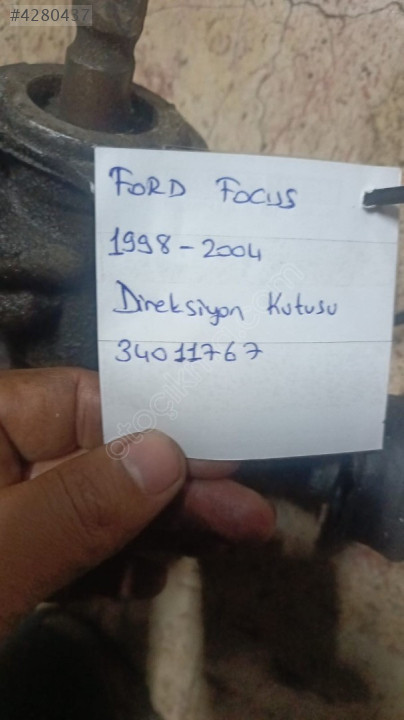 #4280437
FORD FOCUS
1998-2004
Direksiyon Kutusu
34011767